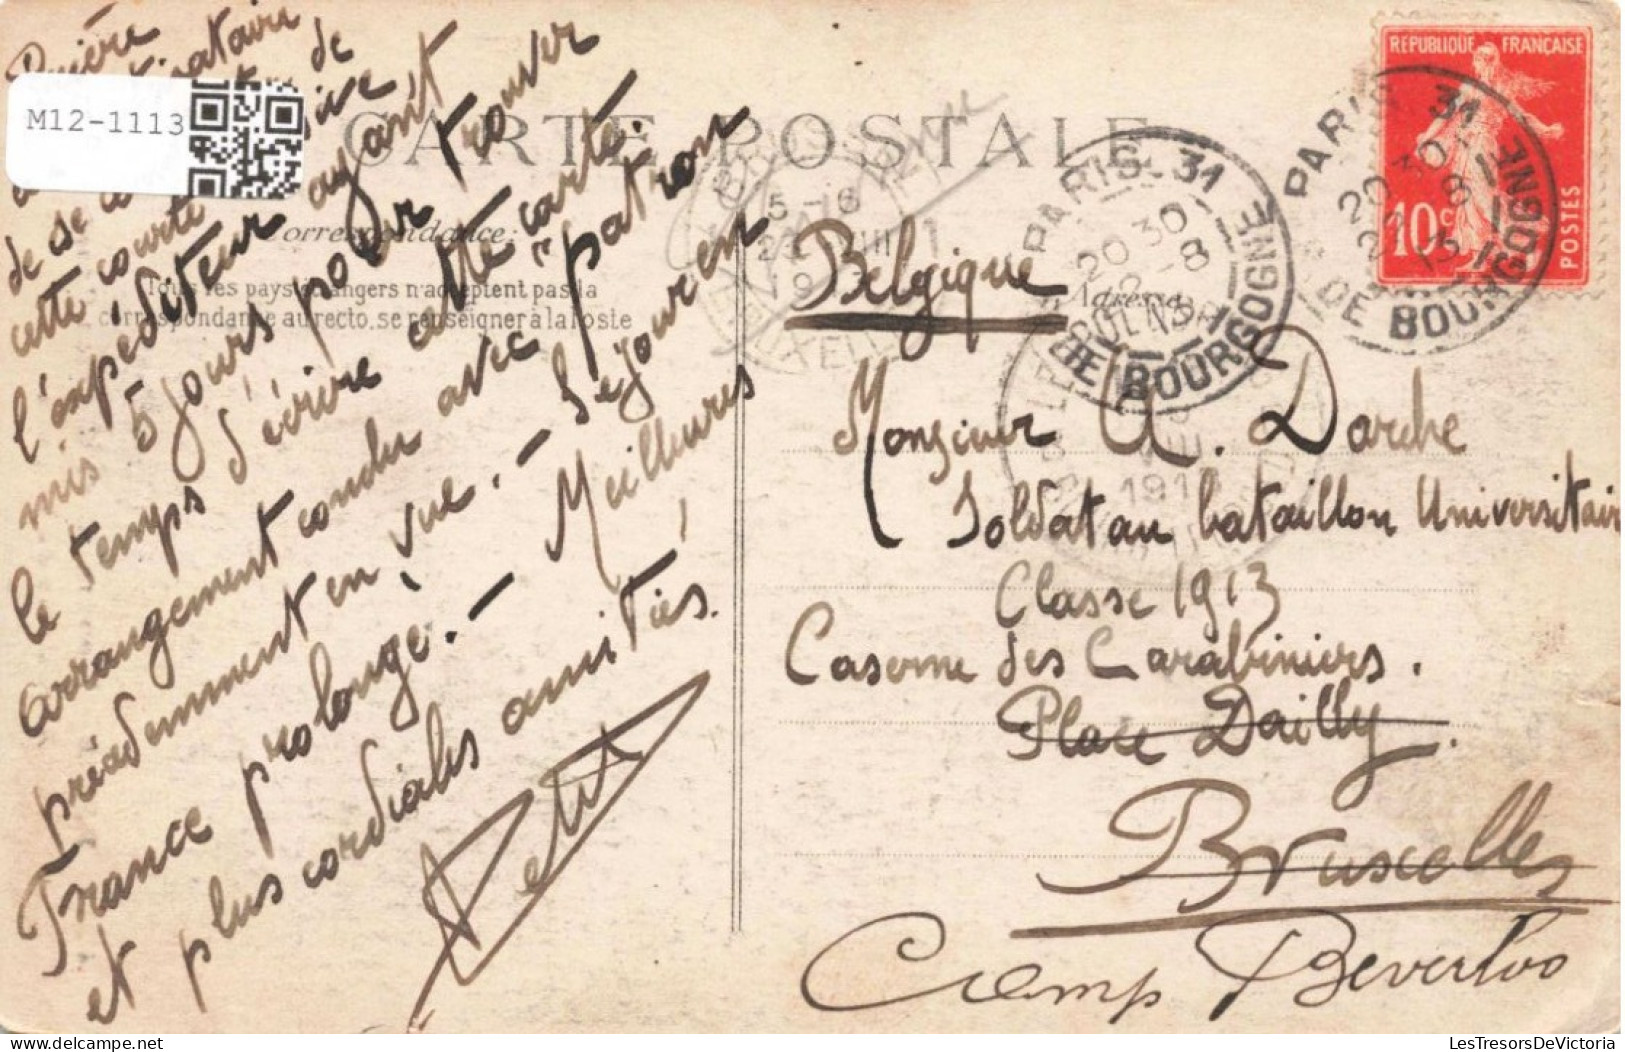 Prière
M12-1113
de se
cette courte
l'expéditeur ayant
mis 5 jours pour trouver
le temps d'écrire cette carte.
Arrangement conclu avec "patron
précédemment en vue. — Séjour en
France prolongé. — Meilleures
et plus cordiales amitiés.
CARTE POSTALE
Correspondance:
Tous les pays étrangers n'acceptent pas la
correspondance au recto. se renseigner à la Poste
Adresse
REPUBLIQUE FRANÇAISE
10c
POSTES
PARIS 31
20 30
R. DE BOURGOGNE
PARIS 31
20 30
DE BOURGOGNE
Belgique
Monsieur A. Darche
Soldat au bataillon Universitaire
Classe 1913
Caserne des Carabiniers.
Place Dailly.
Bruxelles
Camp Beverloo
LesTresorsDeVictoria